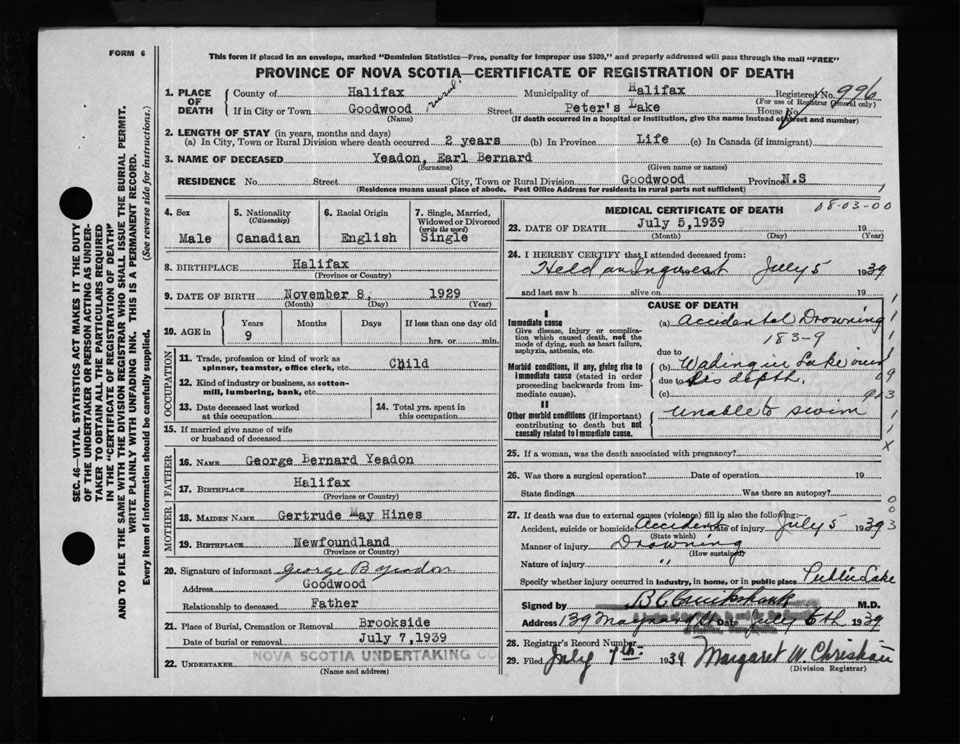 FORM 6
This form if placed in an envelope, marked "Dominion Statistics—Free, penalty for improper use $300," and properly addressed will pass through the mail "FREE"
PROVINCE OF NOVA SCOTIA—CERTIFICATE OF REGISTRATION OF DEATH
1. PLACE OF DEATH
County of Halifax Municipality of Halifax Registered No. 996
(For use of Registrar General only)
If in City or Town Goodwood rural Street Peter's Lake House No.
(Name) (If death occurred in a hospital or institution, give the name instead of street and number)
2. LENGTH OF STAY (in years, months and days)
(a) In City, Town or Rural Division where death occurred 2 years (b) In Province Life (c) In Canada (if immigrant)
3. NAME OF DECEASED Yeadon, Earl Bernard
(Surname) (Given name or names)
RESIDENCE No. Street City, Town or Rural Division Goodwood Province N.S
(Residence means usual place of abode. Post Office Address for residents in rural parts not sufficient)
SEC. 46—VITAL STATISTICS ACT MAKES IT THE DUTY
OF THE UNDERTAKER OR PERSON ACTING AS UNDER-
TAKER TO OBTAIN ALL THE PARTICULARS REQUIRED
IN THE "CERTIFICATE OF REGISTRATION OF DEATH"
AND TO FILE THE SAME WITH THE DIVISION REGISTRAR WHO SHALL ISSUE THE BURIAL PERMIT.
WRITE PLAINLY WITH UNFADING INK. THIS IS A PERMANENT RECORD.
Every item of information should be carefully supplied. (See reverse side for instructions.)
4. Sex Male
5. Nationality (Citizenship) Canadian
6. Racial Origin English
7. Single, Married, Widowed or Divorced (write the word) Single
8. BIRTHPLACE Halifax
(Province or Country)
9. DATE OF BIRTH November 8, 1929
(Month) (Day) (Year)
10. AGE in Years Months Days If less than one day old
9 hrs. or min.
OCCUPATION
11. Trade, profession or kind of work as spinner, teamster, office clerk, etc. Child
12. Kind of industry or business, as cotton-mill, lumbering, bank, etc.
13. Date deceased last worked at this occupation
14. Total yrs. spent in this occupation
15. If married give name of wife or husband of deceased
FATHER
16. NAME George Bernard Yeadon
17. BIRTHPLACE Halifax
(Province or Country)
MOTHER
18. MAIDEN NAME Gertrude May Hines
19. BIRTHPLACE Newfoundland
(Province or Country)
20. Signature of informant George B Yeadon
Address Goodwood
Relationship to deceased Father
21. Place of Burial, Cremation or Removal Brookside
Date of burial or removal July 7,1939
22. UNDERTAKER NOVA SCOTIA UNDERTAKING CO
(Name and address)
08-03-00
MEDICAL CERTIFICATE OF DEATH
23. DATE OF DEATH July 5,1939 19
(Month) (Day) (Year)
24. I HEREBY CERTIFY that I attended deceased from:
Held an Inquest July 5 1939
and last saw h alive on 19
CAUSE OF DEATH
I
Immediate cause
Give disease, injury or complication which caused death, not the mode of dying, such as heart failure, asphyxia, asthenia, etc.
(a) Accidental Drowning
183-9
due to
Morbid conditions, if any, giving rise to immediate cause (stated in order proceeding backwards from immediate cause).
(b) Wading in Lake over
due to his depth.
(c)
II
Other morbid conditions (if important) contributing to death but not causally related to immediate cause.
Unable to swim
25. If a woman, was the death associated with pregnancy?
26. Was there a surgical operation? Date of operation 19
State findings Was there an autopsy?
27. If death was due to external causes (violence) fill in also the following:
Accident, suicide or homicide Accident Date of injury July 5 1939
(State which)
Manner of injury Drowning
(How sustained)
Nature of injury "
Specify whether injury occurred in industry, in home, or in public place Public Lake
Signed by B C Cruikshank M.D.
Address 139 Maynard St Date July 6th 1939
28. Registrar's Record Number
29. Filed July 7th 1939 Margaret W. Christian
(Division Registrar)